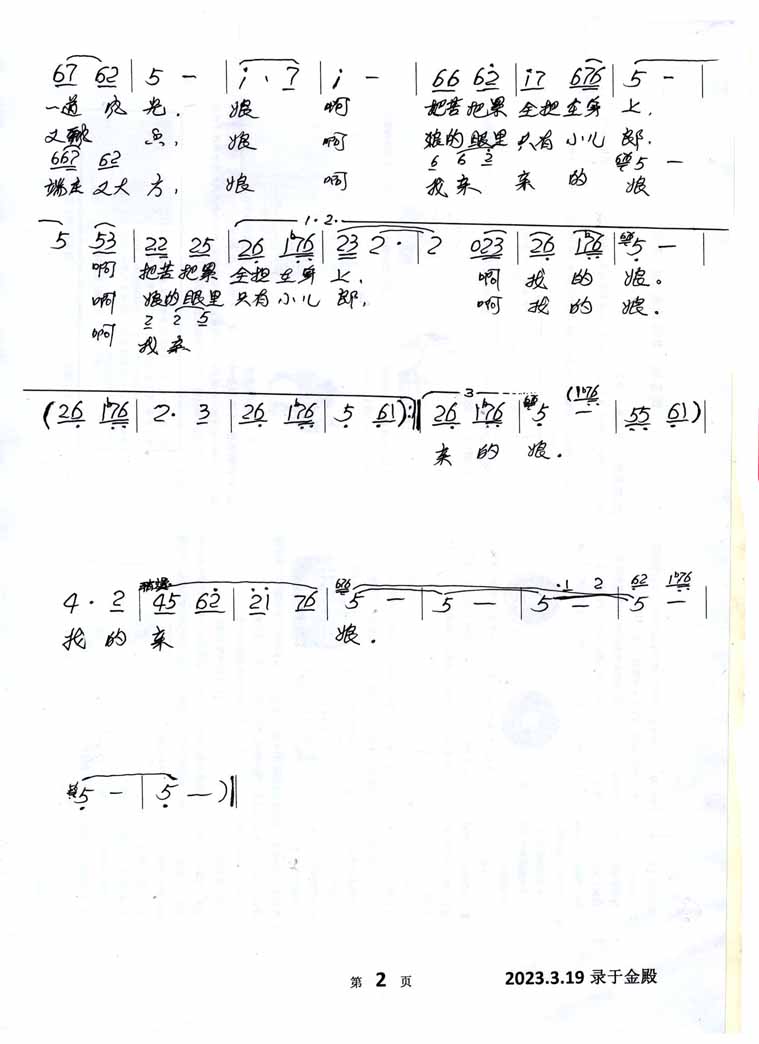 67 62 | 5 - | i、7 | i - | 66 62 | i7 676 | 5 - |
一道 光. 娘 啊 把苦把累 全担在身 上,
又 娘 啊 娘的眼里 只有小儿 郎.
667 62 6 6 2 5 -
端庄又大方, 娘 啊 我亲 亲 的 娘
5 53 | 22 25 | 26 1♭76 | 23 2· | 2 023 | 26 1♭76 | 5 - |
1·2·
啊 把苦把累 全担在身 上, 啊 我 的 娘。
啊 娘的眼里 只有小儿 郎, 啊 我 的 娘.
2 2 5
啊 我亲
3
(26 1♭76 | 2· 3 | 26 1♭76 | 5 61):‖ 26 1♭76 | 5 - (1♭76 | 55 61) |
亲 的 娘.
4· 2 | 45 62 | 2i 76 | 5 - | 5 - | 5 - | 5 - |
·1 2 62 1♭76
我 的 亲 娘.
5 - | 5 - )‖
第 2 页 2023.3.19 录于金殿